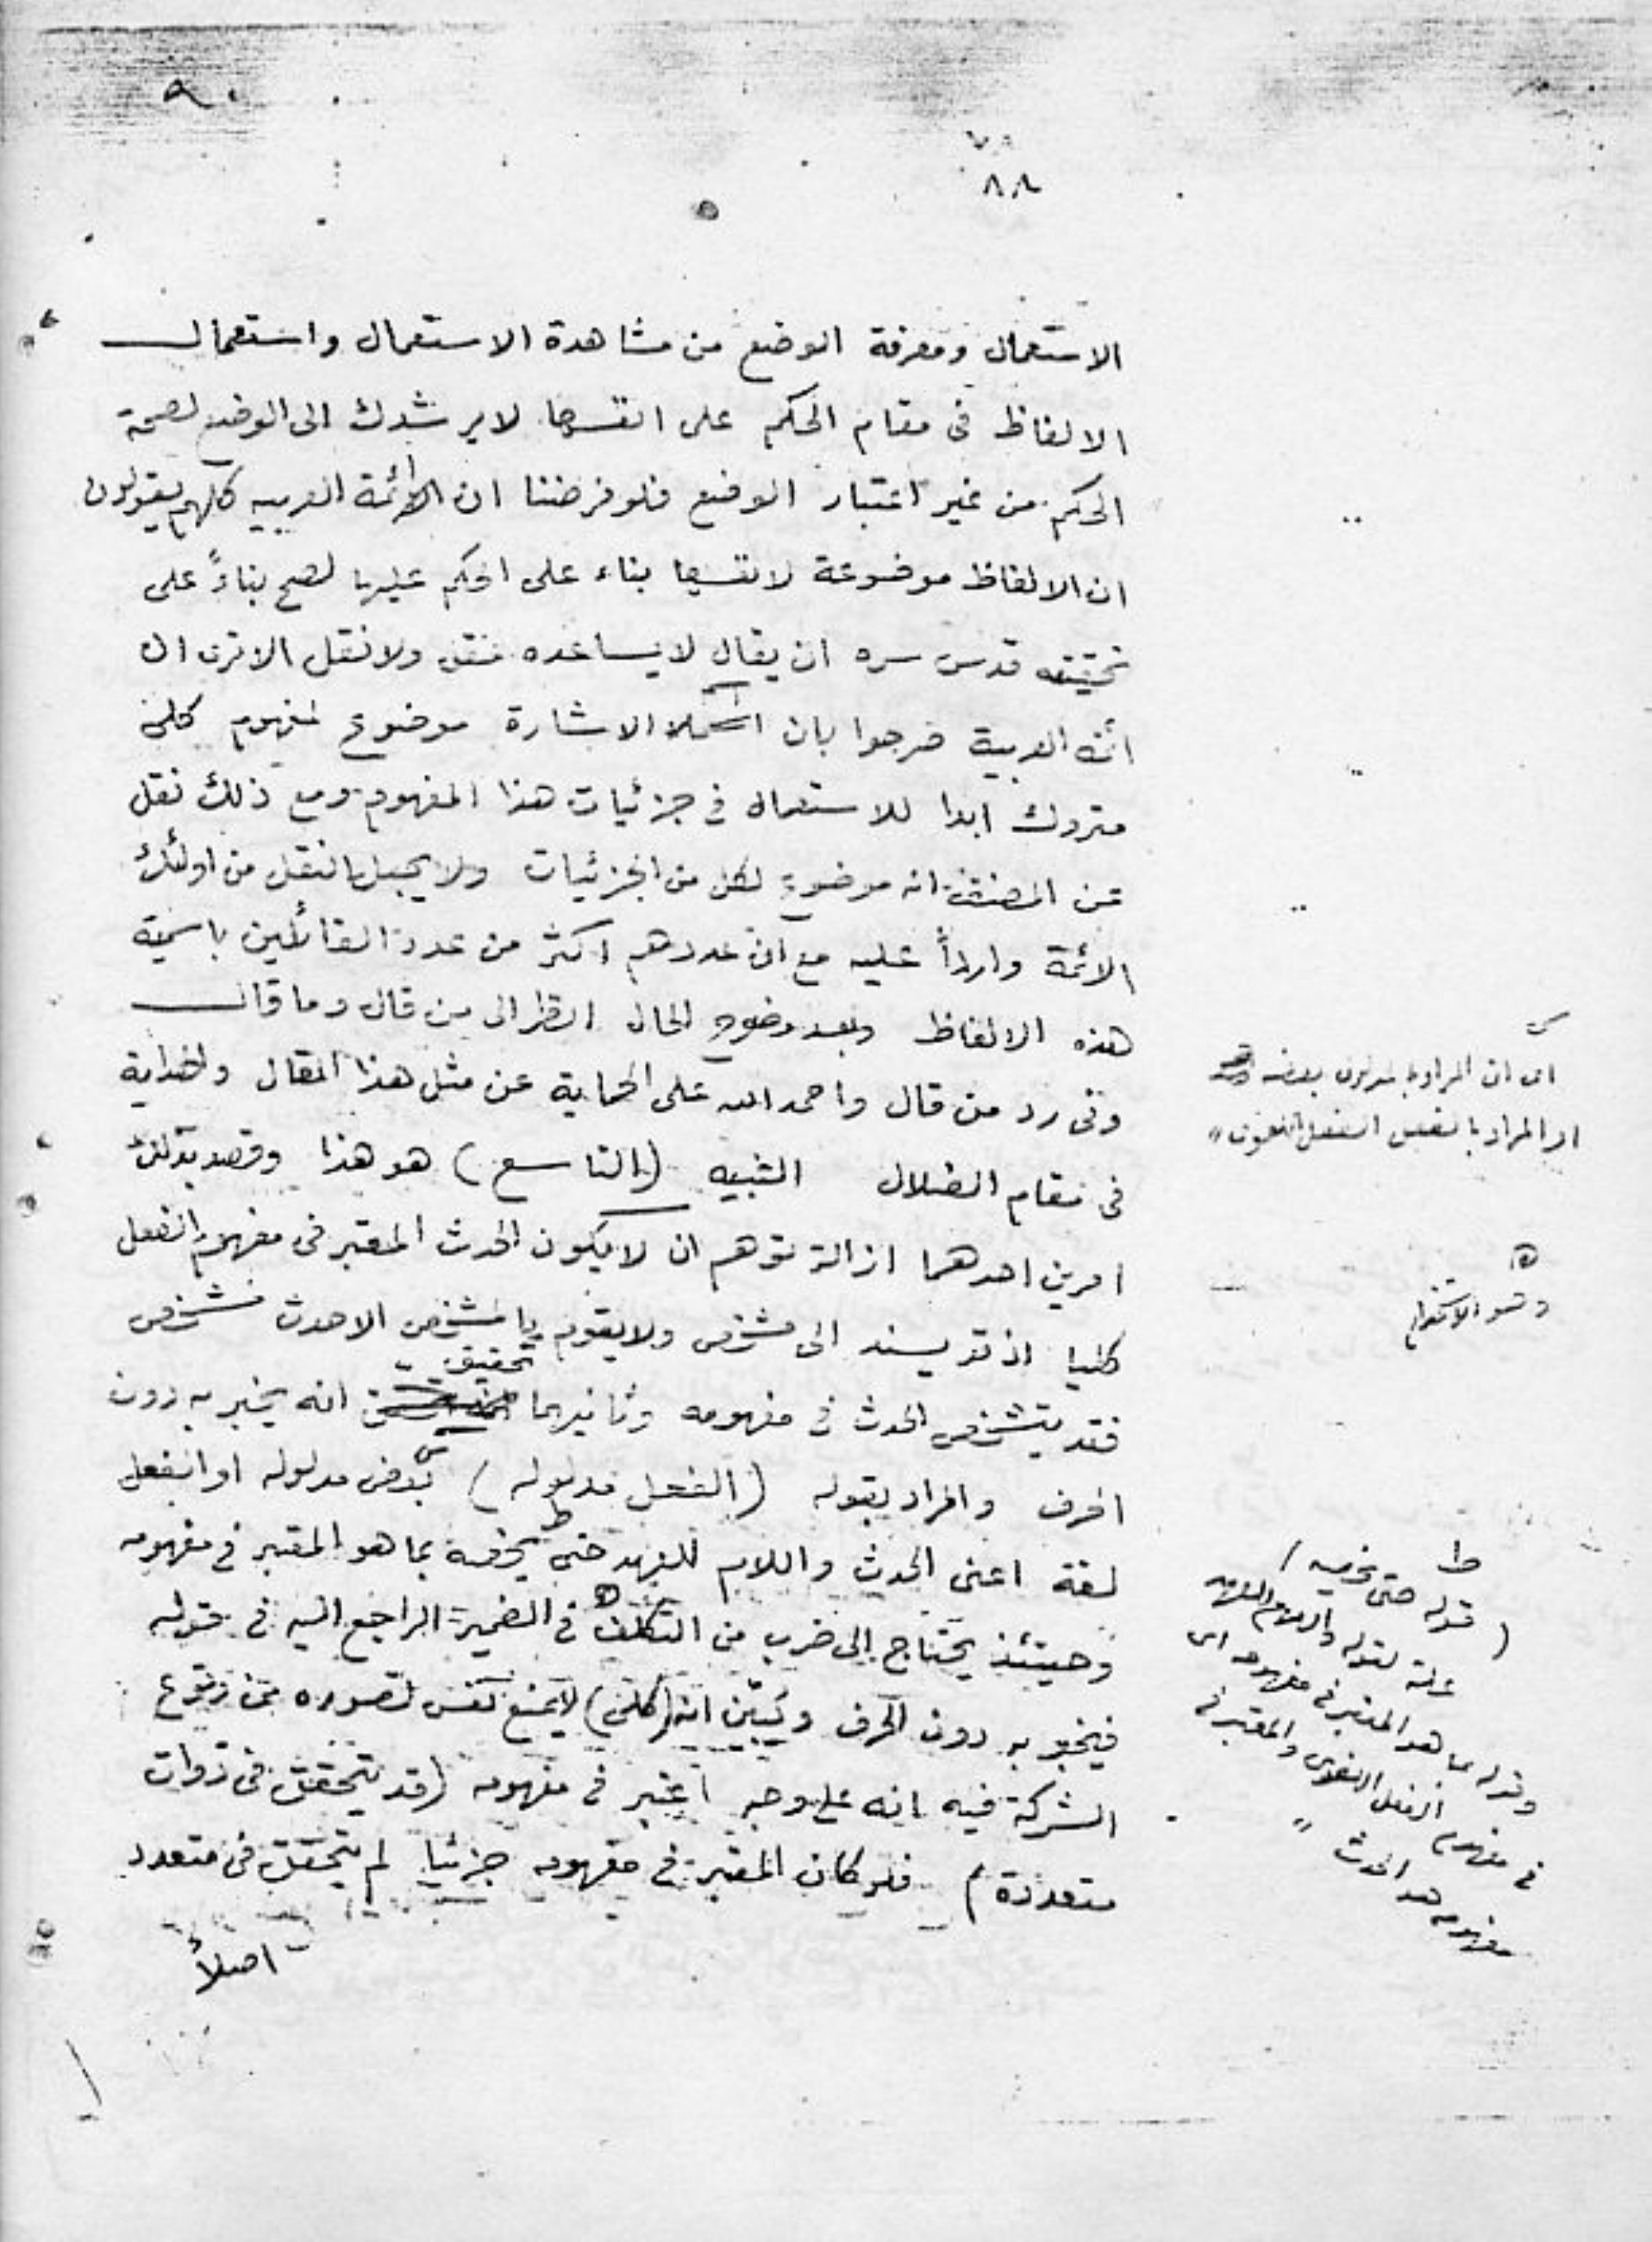 ٩٠
٨٨
الاستعمال ومعرفة الوضع من مشاهدة الاستعمال واستعمال
الالفاظ فى مقام الحكم على انفسها لا يرشدك الى الوضع لصحة
الحكم من غير اعتبار الوضع فلو فرضنا ان ائمة العربيه كلهم يقولون
ان الالفاظ موضوعة لانفسها بناء على الحكم عليها لصح بناءً على
تحقيقه قدس سره ان يقال لا يساعده عقل ولا نقل الا ترى ان
ائمة العربية صرحوا بان الاشارة موضوع لمفهوم كلى
متروك ابدا للاستعمال في جزئيات هذا المفهوم ومع ذلك نقل
عن المصنف انه موضوع لكل من الجزئيات ولا يجعل النقل من اولئك
الائمة وارداً عليه مع ان عددهم اكثر من عدد القائلين باسمية
هذه الالفاظ وبعد وضوح الحال انظر الى من قال وما قال
وفى رد من قال واحمد الله على الحماية عن مثل هذا المقال والهداية
فى مقام الضلال التنبيه (التاسع) هو هذا وقصد بذلك
امرين احدهما ازالة توهم ان لا يكون الحدث المعتبر فى مفهوم الفعل
كليا اذ قد يسند الى مشخص ولا يقوم بالمشخص الا حدث مشخص
فقد يتشخص الحدث فى مفهومه وثانيهما تحقيق انه يخبر به دون
الحرف والمراد بقوله (الفعل مدلوله) بعض مدلوله او الفعل
لغة اعنى الحدث واللام للعهد حتى يحرفه بما هو المعتبر فى مفهومه
وحينئذ يحتاج الى ضرب من التكلف في الضمير الراجع اليه فى قوله
فيخبر به دون الحرف وتبين انه (كلى) لا يمنع نفس تصوره من وقوع
الشركة فيه انه على وجه اعتبر فى مفهومه (قد يتحقق فى ذوات
متعددة) فلو كان المعتبر فى مفهومه جزئيا لم يتحقق فى متعدد
اصلاً
اى ان المراد بمدلوله بعضه
او المراد بالفعل الفعل اللغوى
وهو الاستخدام
ط
(قوله حتى
علة لقوله واللام للعهد
وقوله بما هو المعتبر فى مفهومه اى
فى مفهوم الفعل اللغوى والمعتبر فى
مفهومه هو الحدث